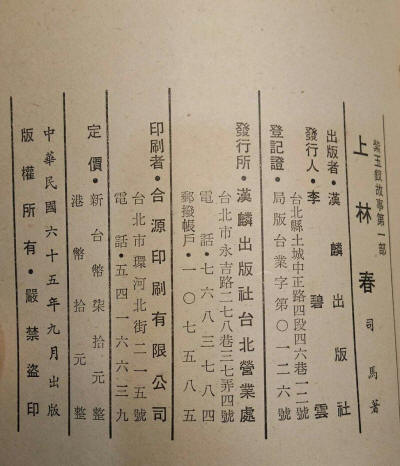 紫玉釵故事第一部
上林春 司馬著
出版者・漢麟出版社
發行人・李碧雲
台北縣土城中正路四段四六巷一二號
登記證・局版台業字第〇一二六號
發行所・漢麟出版社台北營業處
台北市永吉路二七八巷三七弄四號
電話・七六八三七八四
郵撥帳戶・一〇七五八五
印刷者・合源印刷有限公司
台北市環河北街二一五號
電話・五四一六六三九
定價・新台幣柒拾元整
港幣拾元整
中華民國六十五年九月出版
版權所有・嚴禁盜印